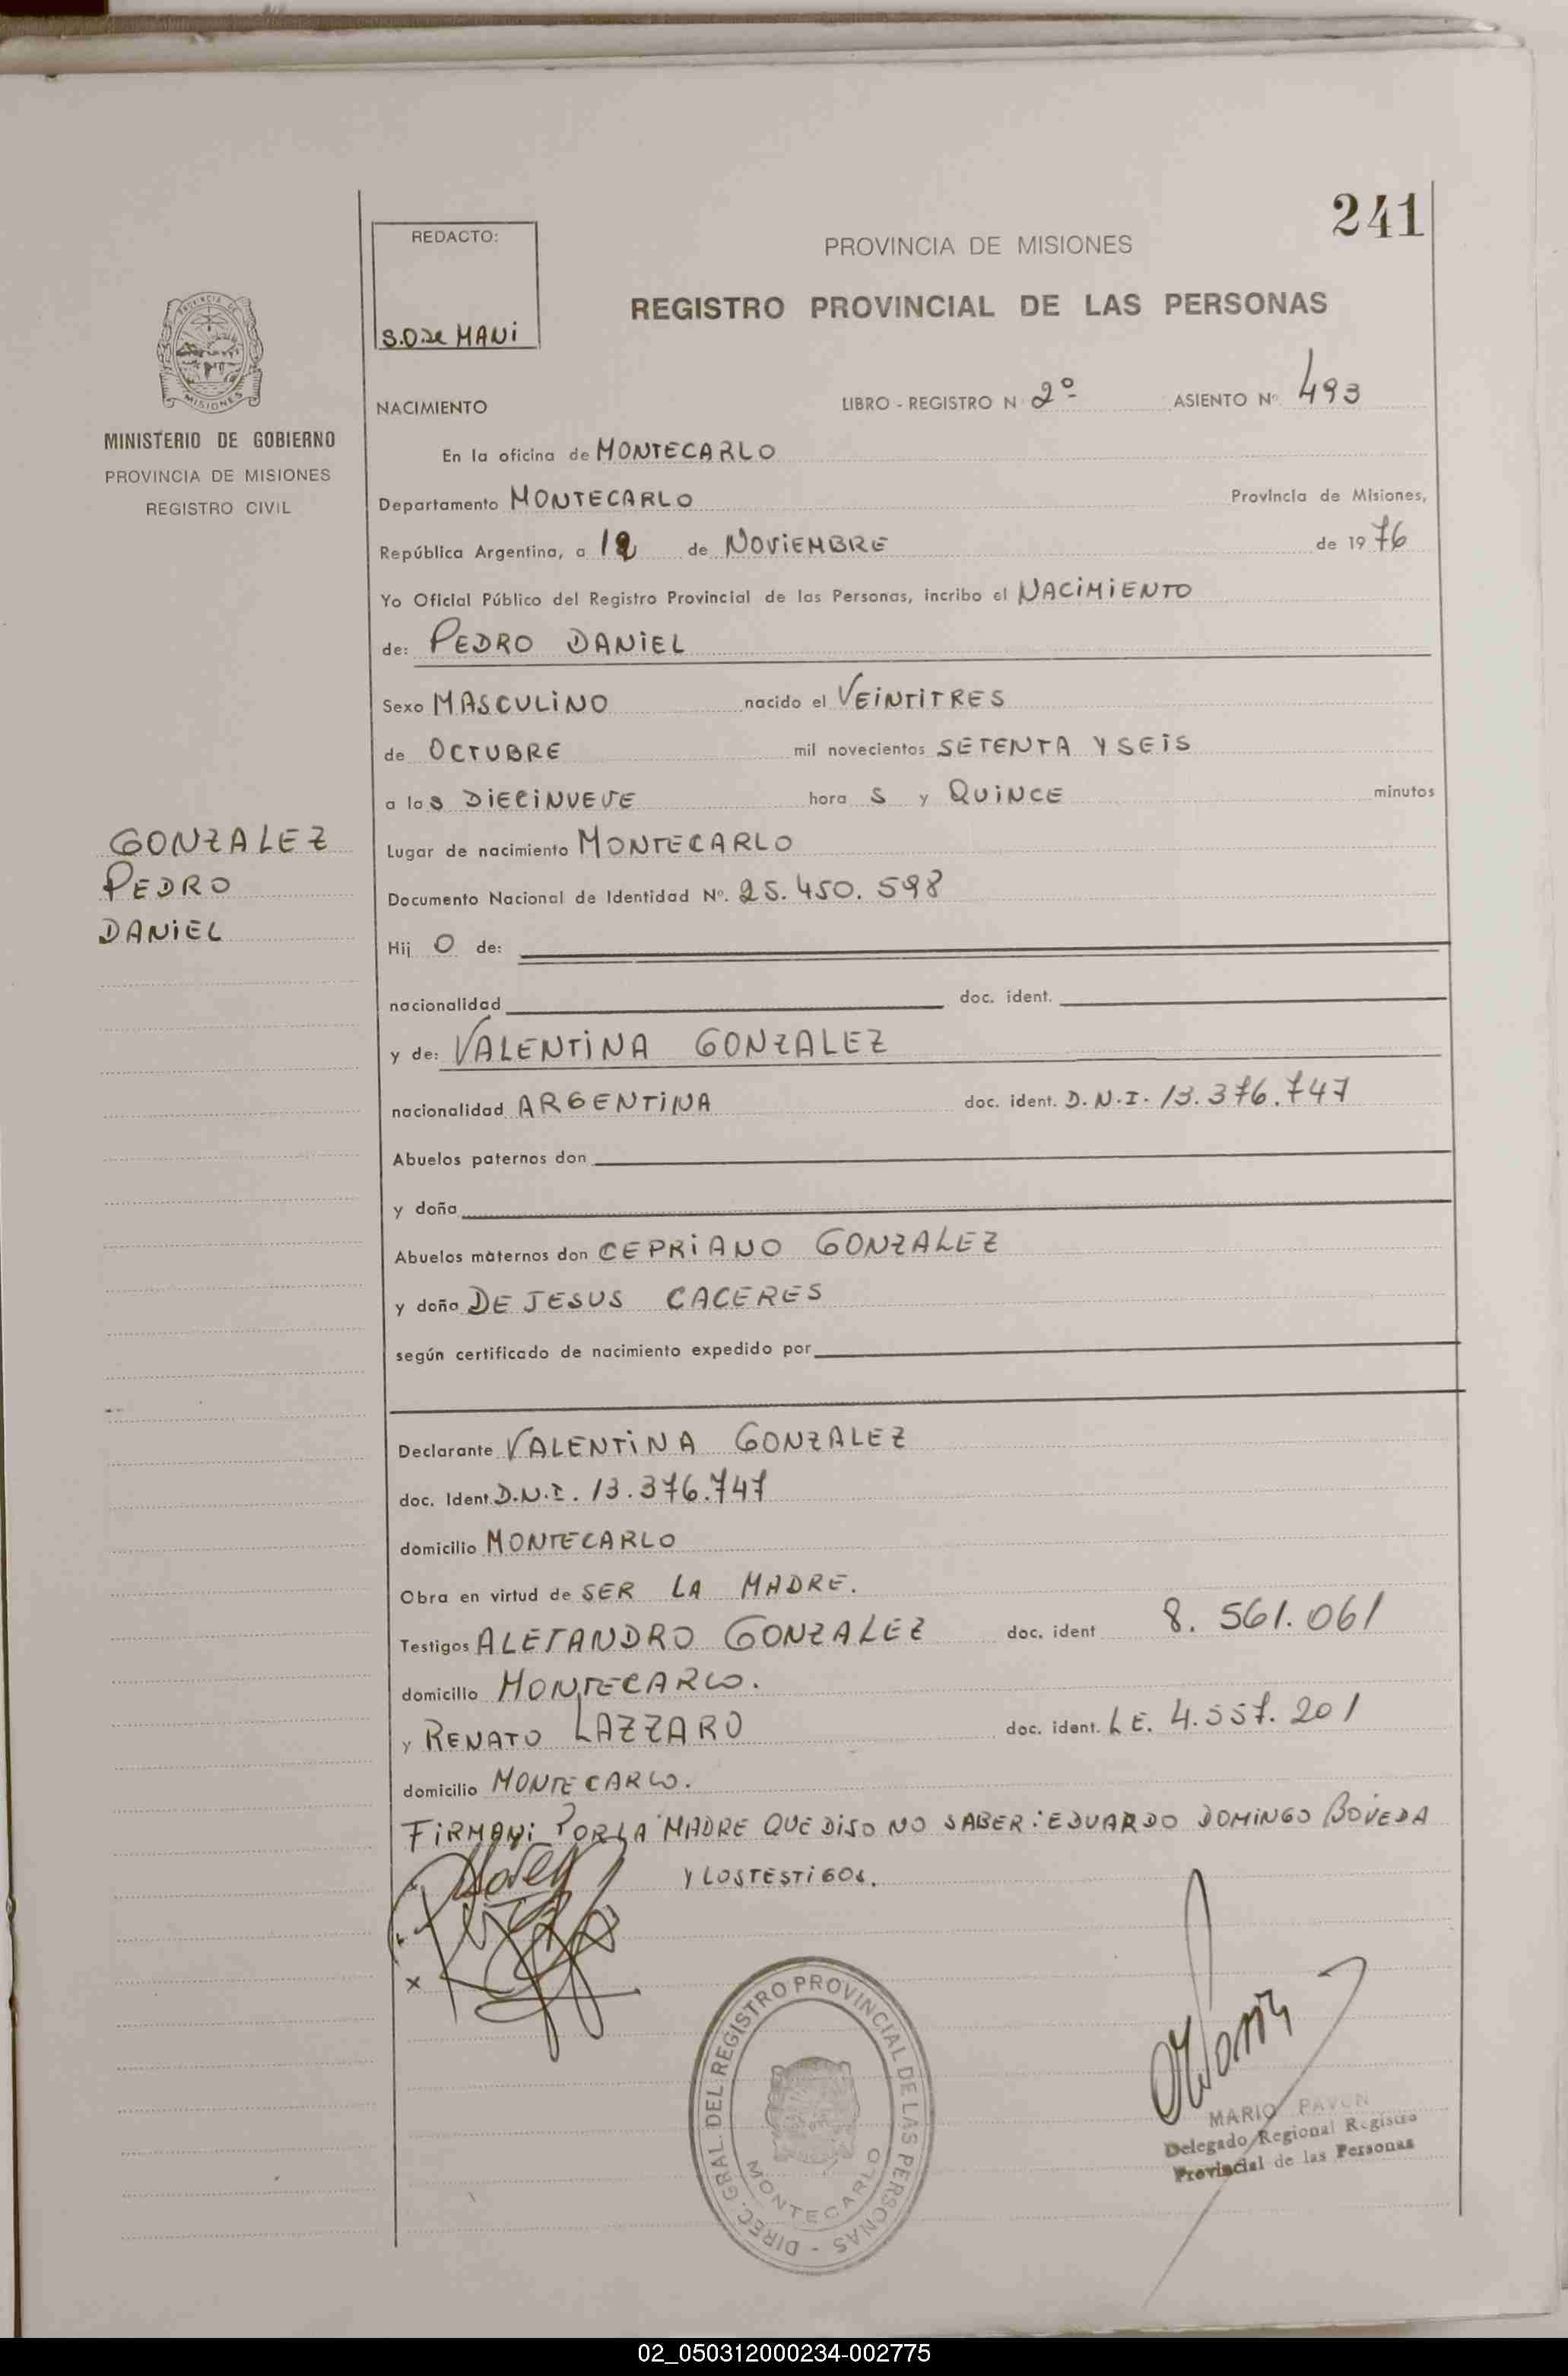 241
REDACTO:
S.O.De MANI
PROVINCIA DE MISIONES
REGISTRO PROVINCIAL DE LAS PERSONAS
PROVINCIA DE MISIONES
MINISTERIO DE GOBIERNO
PROVINCIA DE MISIONES
REGISTRO CIVIL
NACIMIENTO LIBRO - REGISTRO N 2º ASIENTO Nº 493
En la oficina de MONTECARLO
Departamento MONTECARLO Provincia de Misiones,
República Argentina, a 12 de NOVIEMBRE de 1976
Yo Oficial Público del Registro Provincial de las Personas, incribo el NACIMIENTO
de: PEDRO DANIEL
Sexo MASCULINO nacido el VEINTITRES
de OCTUBRE mil novecientos SETENTA Y SEIS
a las DIECINUEVE hora S y QUINCE minutos
GONZALEZ
PEDRO
DANIEL
Lugar de nacimiento MONTECARLO
Documento Nacional de Identidad Nº. 25.450.598
Hij O de:
nacionalidad doc. ident.
y de: VALENTINA GONZALEZ
nacionalidad ARGENTINA doc. ident. D.N.I. 13.376.747
Abuelos paternos don
y doña
Abuelos maternos don CEPRIANO GONZALEZ
y doña DE JESUS CACERES
según certificado de nacimiento expedido por
Declarante VALENTINA GONZALEZ
doc. Ident. D.N.I. 13.376.747
domicilio MONTECARLO
Obra en virtud de SER LA MADRE.
Testigos ALEJANDRO GONZALEZ doc. ident 8.561.061
domicilio MONTECARLO.
y RENATO LAZZARO doc. ident. L E. 4.557.201
domicilio MONTECARLO.
FIRMAN: POR LA MADRE QUE DIJO NO SABER: EDUARDO DOMINGO BOVEDA
Y LOS TESTIGOS.
DIREC. GRAL. DEL REGISTRO PROVINCIAL DE LAS PERSONAS -
MONTECARLO
MARIO PAVON
Delegado Regional Registro
Provincial de las Personas
02_050312000234-002775